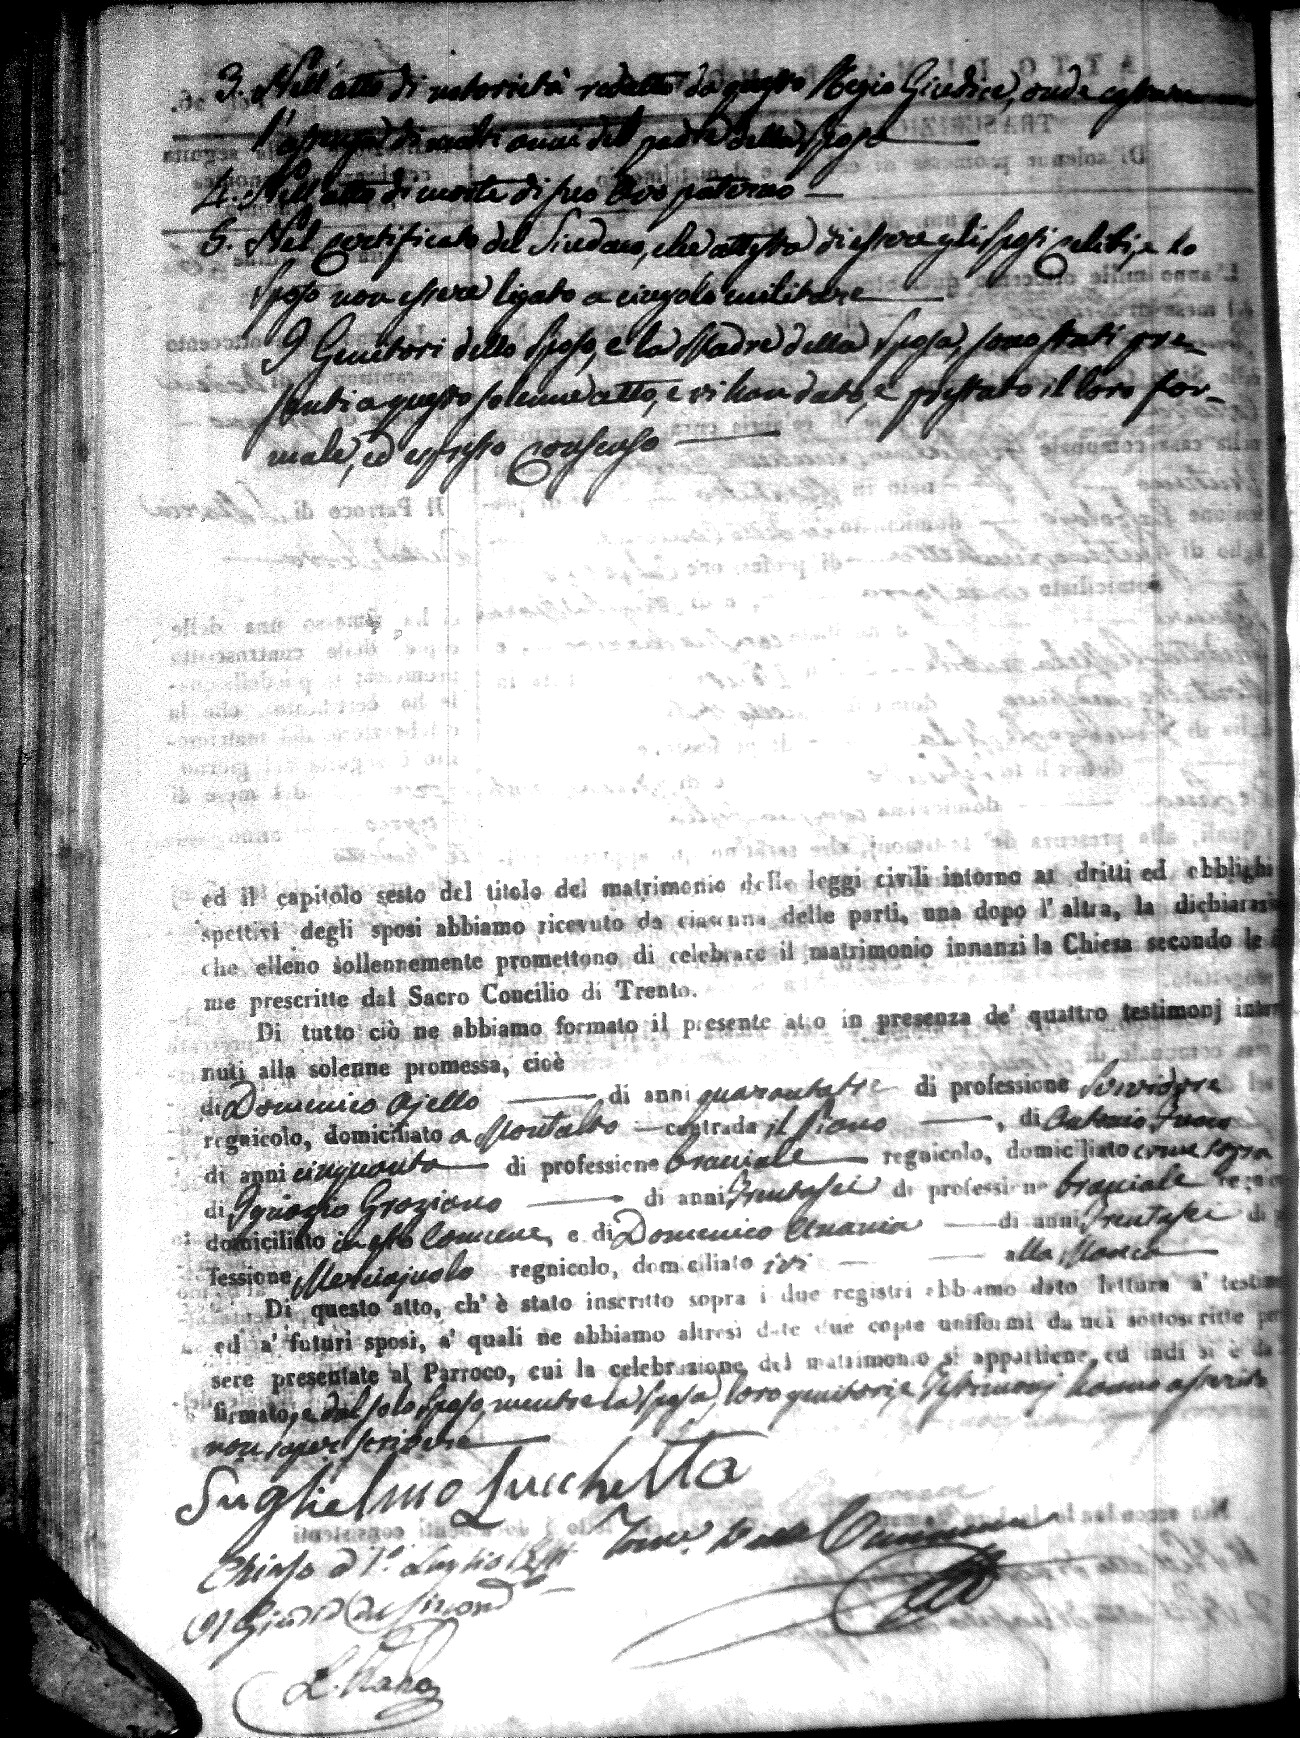 3. Nell'atto di notorietà redatto da questo Regio Giudice, onde
l'assenza di molti anni del padre della sposa
4. Nell'atto di morte di suo avo paterno
5. Nel certificato del Sindaco, che attesta di essere gli sposi celibi, e lo
sposo non essere ligato a cingolo militare
I Genitori dello sposo, e la Madre della sposa, sono stati pre-
senti a questo solenne atto, e vi han dato, e prestato il loro for-
male, ed espresso consenso
ed il capitolo sesto del titolo del matrimonio delle leggi civili intorno ai dritti ed obblighi
spettivi degli sposi abbiamo ricevuto da ciascuna delle parti, una dopo l'altra, la dichiarazi
che elleno sollennemente promettono di celebrare il matrimonio innanzi la Chiesa secondo le
me prescritte dal Sacro Concilio di Trento.
Di tutto ciò ne abbiamo formato il presente atto in presenza de' quattro testimonj inter
nuti alla solenne promessa, cioè
di Domenico Ajello di anni quarantatre di professione Servidore
regnicolo, domiciliato a Montalto contrada il Piano , di Antonio Fusco
di anni cinquanta di professione braciale regnicolo, domiciliato come sopra
di Ignazio Graziano di anni trentasei di professione braciale
domiciliato in gto Comune, e di Domenico Anania di anni trentasei di
fessione regnicolo, domiciliato ivi alla
Di questo atto, ch' è stato inscritto sopra i due registri abbiamo dato lettura a' testim
ed a' futuri sposi, a' quali ne abbiamo altresì date due copie uniformi da noi sottoscritte per
sere presentate al Parroco, cui la celebrazione del matrimonio si appartiene, ed indi si è da
firmato, e dal solo sposo, mentre la sposa, loro genitori, e testimonj hanno asserito
non saper scrivere
Guglielmo Lucchetta
Chiuso a 1° Luglio
Il Giudice del Circond.